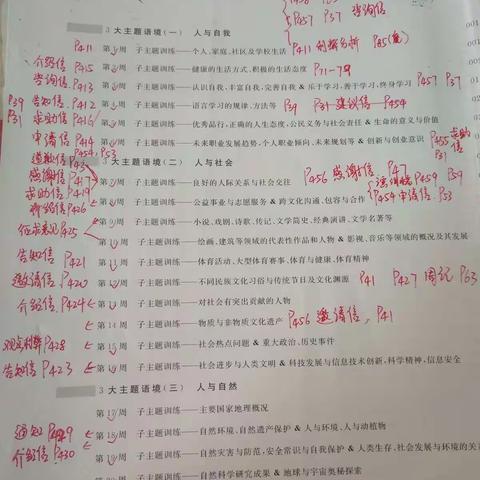 P457 P37 咨询信
3 大主题语境(一) 人与自我
P411 第1周 子主题训练——个人、家庭、社区及学校生活 P411 利弊分析 P85
介绍信 P415 第2周 子主题训练——健康的生活方式、积极的生活态度 P71-79
咨询信 P413 第3周 子主题训练——认识自我、丰富自我、完善自我 & 乐于学习,善于学习,终身学习 P457 P37
P39 告知信 P412 第4周 子主题训练——语言学习的规律、方法等 P39 P31 建议信-P454
P31 求助信 P416 第5周 子主题训练——优秀品行,正确的人生态度,公民义务与社会责任 & 生命的意义与价值
申请信 P414 第6周 子主题训练——未来职业发展趋势,个人职业倾向、未来规划等 & 创新与创业意识 P455 求助信 P31
P454 P53
道歉信
3 大主题语境(二) 人与社会
感谢信 P417 P456 感谢信 P47
求助信 P419 第8周 子主题训练——良好的人际关系与社会交往 P459 P59
P426 第9周 子主题训练——公益事业与志愿服务 & 跨文化沟通、包容与合作 P454 申请信 P53
征求意见 P425 第10周 子主题训练——小说、戏剧、诗歌、传记、文学简史、经典演讲、文学名著等
第10周 子主题训练——绘画、建筑等领域的代表性作品和人物 & 影视、音乐等领域的概况及其发展
告知信 P421 第11周 子主题训练——体育活动、大型体育赛事、体育与健康、体育精神
邀请信 P420 第12周 子主题训练——不同民族文化习俗与传统节日及文化渊源 P41 P427 周记 P63
介绍信 P424 第13周 子主题训练——对社会有突出贡献的人物
第14周 子主题训练——物质与非物质文化遗产 P456 邀请信, P41
观点利弊 P428 第15周 子主题训练——社会热点问题 & 重大政治、历史事件
告知信 P423 第16周 子主题训练——社会进步与人类文明 & 科技发展与信息技术创新,科学精神,信息安全
3 大主题语境(三) 人与自然
第17周 子主题训练——主要国家地理概况
通知 P429 第18周 子主题训练——自然环境、自然遗产保护 & 人与环境、人与动植物
介绍信 P430 第19周 子主题训练——自然灾害与防范,安全常识与自我保护 & 人类生存、社会发展与环境的关
第20周 子主题训练——自然科学研究成果 & 地球与宇宙奥秘探索